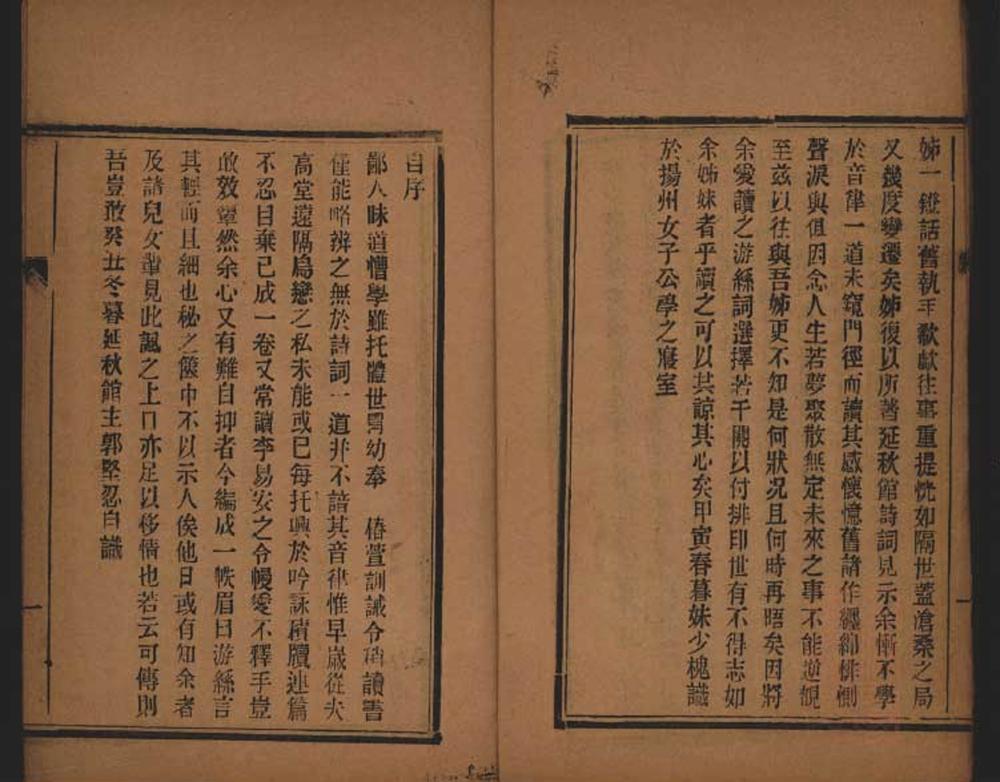 姊一鐙話舊執手歔欷往事重提恍如隔世蓋滄桑之局
又幾度變遷矣姊復以所著延秋館詩詞見示余慚不學
於音律一道未窺門徑而讀其感懷憶舊諸作纏綿悱惻
聲淚與俱因念人生若夢聚散無定未來之事不能逆覩
至茲以往與吾姊更不知是何狀况且何時再晤矣因將
余愛讀之游絲詞選擇若干闋以付排印世有不得志如
余姊妹者乎讀之可以共諒其心矣甲寅春暮妹少槐識
於揚州女子公學之寢室
自序
鄙人昧道懵學雖托體世冑幼奉 椿萱訓誡令稍讀書
僅能略辨之無於詩詞一道非不諳其音律惟早歲從夫
高堂遠隔烏戀之私未能或已每托興於吟詠積牘連篇
不忍自棄已成一卷又常讀李易安之令慢愛不釋手豈
敢效顰然余心又有難自抑者今編成一帙眉曰游絲言
其輕而且細也秘之篋中不以示人俟他日或有知余者
及諸兒女輩見此諷之上口亦足以移情也若云可傳則
吾豈敢癸丑冬暮延秋館主郭堅忍自識
一
一